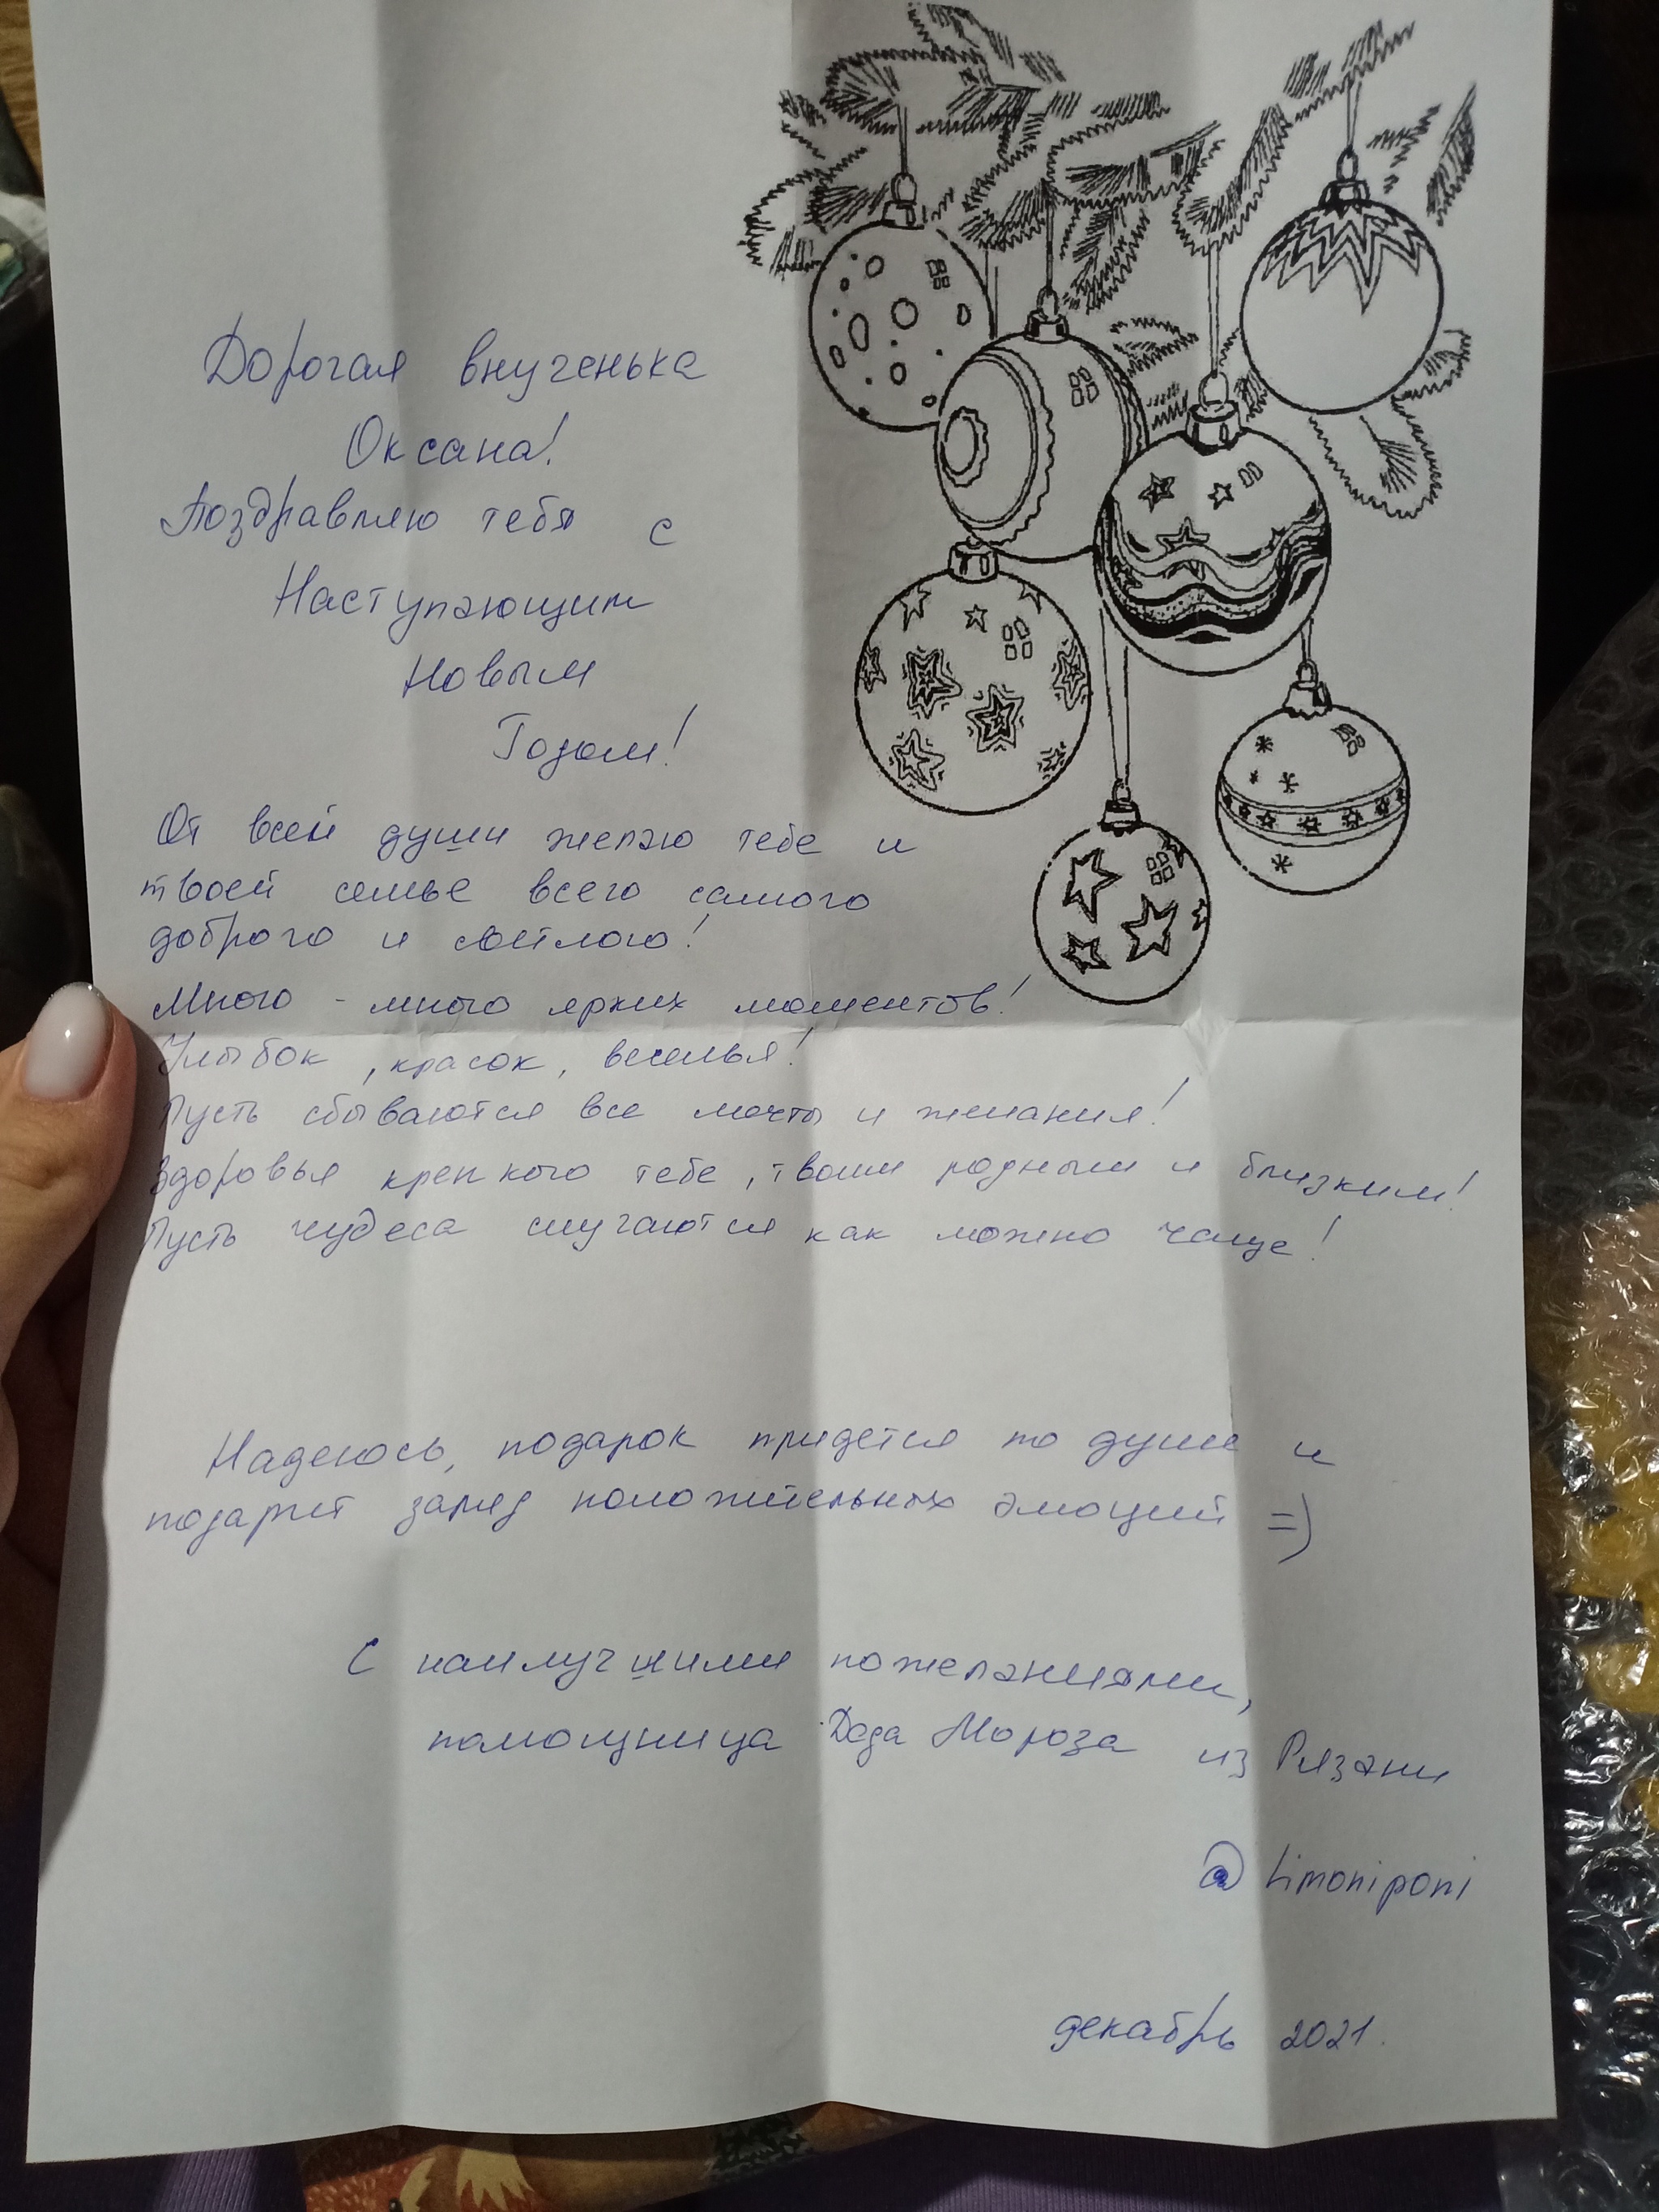 Дорогая внученька
Оксана!
Поздравляю тебя с
Наступающим
Новым
Годом!
От всей души желаю тебе и
твоей семье всего самого
доброго и светлого!
Много - много ярких моментов!
Улыбок, красок, веселья!
Пусть сбываются все мечты и желания!
Здоровья крепкого тебе, твоим родным и близким!
Пусть чудеса случаются как можно чаще!
Надеюсь, подарок придется по душе и
подарит заряд положительных эмоций =)
С наилучшими пожеланиями,
помощница Деда Мороза из Рязани
@ Limoniponi
декабрь 2021.